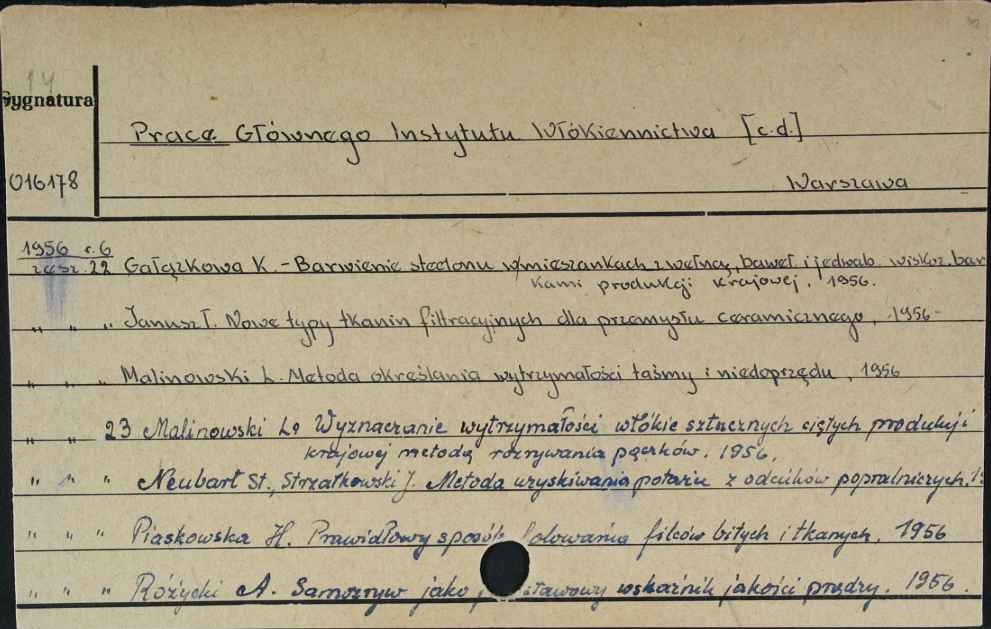 14
Sygnatura
Prace Głównego Instytutu Włókiennictwa [c.d.]
016178
Warszawa
1956 r. 6
zesz. 22 Gałązkowa K. - Barwienie steelonu w mieszankach z wełną, baweł. i jedwab. wiskoz. bar
kami produkcji krajowej, 1956.
" " " Janusz Ł. Nowe typy tkanin filtracyjnych dla przemysłu ceramicznego, 1956-
" " " Malinowski L. Metoda określania wytrzymałości taśmy i niedoprzędu, 1956
" " 23 Malinowski L. Wyznaczanie wytrzymałości włókie sztucznych ciętych produkcji
krajowej metodą rozrywania pęczków. 1956.
" " " Neubart St., Strzałkowski J. Metoda uzyskiwania potażu z odcieków popralniczych. 1
" " " Piaskowska H. Prawidłowy sposób folowania filców bitych i tkanych. 1956
" " " Różycki A. Samozryw jako stawowy wskaźnik jakości przędzy. 1956.